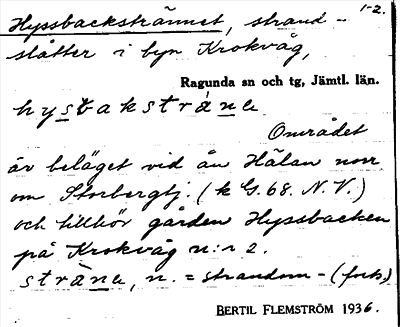 1-2.
Hyssbackstrännet, strand-
slåtter i byn Krokvåg,
Ragunda sn och tg, Jämtl. län.
hysbakstràne
Området
är beläget vid ån Hälan norr
om Storbergtj. (k G. 68. N.V.)
och tillhör gården Hyssbacken
på Krokvåg n:r 2.
stràne, n. = strandom- (forts.)
BERTIL FLEMSTRÖM 1936.